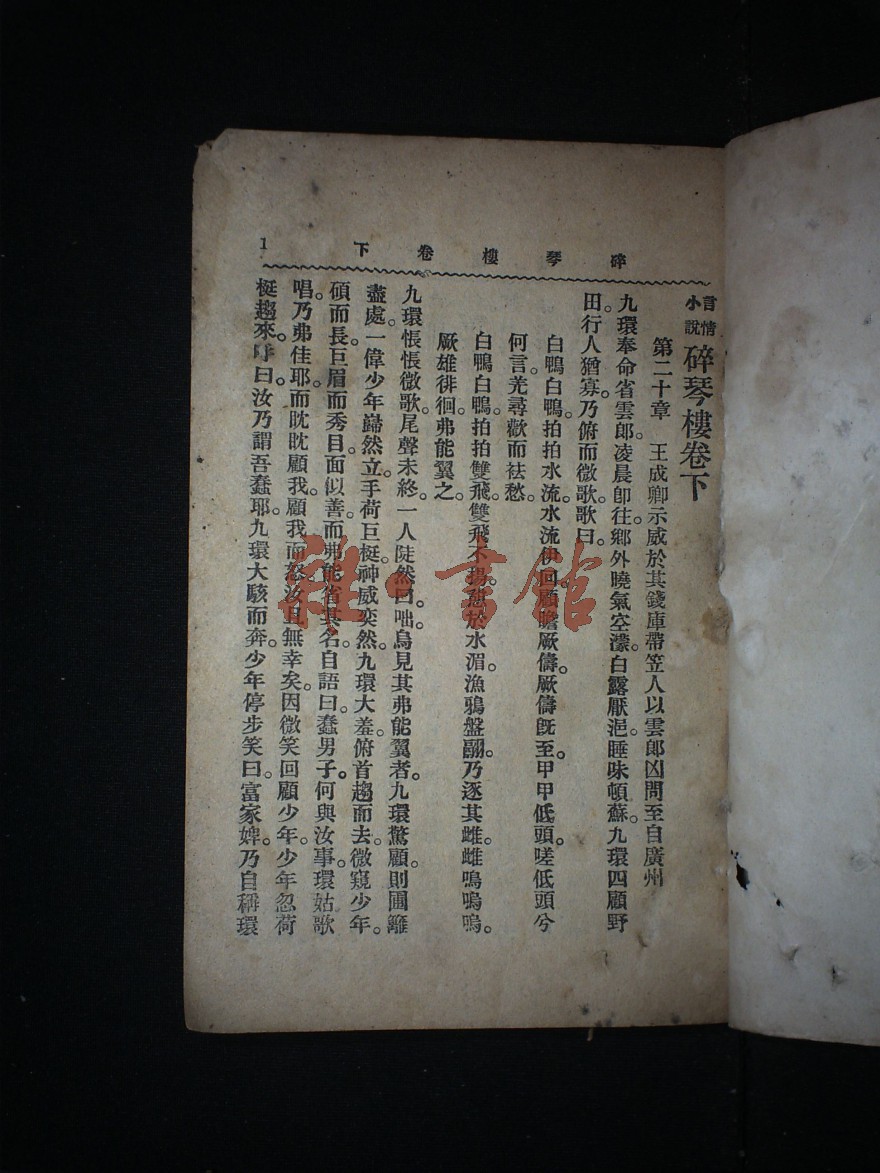 碎琴樓卷下
1
言情
小說
碎琴樓卷下
第二十章　王成卿示威於其錢庫帶笠人以雲郎凶問至自廣州
九環奉命省雲郎。凌晨卽往。鄉外曉氣空濛。白露厭浥。睡味頓蘇。九環四顧野
田。行人猶寡。乃俯而微歌。歌曰。
白鴨白鴨。拍拍水流。水流伊回。顧瞻厥儔。厥儔旣至。甲甲低頭。嗟低頭兮
何言。羌尋歡而袪愁。
白鴨白鴨。拍拍雙飛。雙飛不揚。憩於水湄。漁鴉盤翮。乃逐其雌。雌嗚嗚嗚。
厥雄徘徊。弗能翼之。
九環悵悵微歌。尾聲未終。一人陡然曰。咄。烏見其弗能翼者。九環驚顧。則圃籬
盡處。一偉少年巋然立。手荷巨梃。神威奕然。九環大羞。俯首趨而去。微窺少年。
碩而長。巨眉而秀目。面似善。而弗能省其名。自語曰。蠢男子。何與汝事。環姑歌
唱。乃弗佳耶。而眈眈顧我。顧我而怒。汝且無幸矣。因微笑回顧少年。少年忽荷
梃趨來。呼曰。汝乃謂吾蠢耶。九環大駭而奔。少年停步笑曰。富家婢。乃自稱環
雜·書館